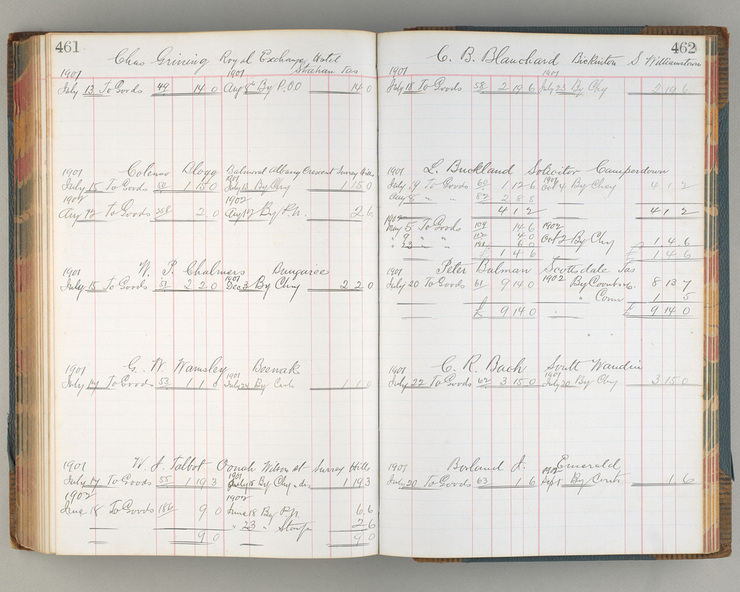 461
Chas Grining Royal Exchange Hotel
Strahan Tas
1901 1901
July 13 To Goods 49 14 0 Aug 8 By P.O.O 14 0
1901 Colenso Dlogg Balmoral Albany Crescent Surrey Hills
July 15 To Goods 50 1 15 0 July 18 By Chq 1 15 0
1902 1902
Aug 12 To Goods 2 0 Aug 12 By P.N. 2 6
1901 W. P. Chalmers Dungaree
July 15 To Goods 51 2 2 0 Dec 3 By Chq 2 2 0
G. W. Wamsley Beenak
1901 1901
July 17 To Goods 53 1 1 0 July 24 By Cash 1 1 0
1901 W. J. Talbot Oonah Wilson st Surrey Hills
July 17 To Goods 55 1 19 3 July 18 By Chq 1 19 3
1902 1902
June 18 To Goods 186 9 0 June 18 By P.N. 6 6
" 23 " Stamps 2 6
9 0 9 0
462
C. B. Blanchard Bickiston S Williamstown
1901 1901
July 18 To Goods 58 2 19 6 July 23 By Chq 2 19 6
1901 L. Buckland Solicitor Camperdown
July 19 To Goods 60 1 12 6 Oct 4 By Chq 4 1 2
Aug 8 " " 82 2 8 8
4 1 2 4 1 2
1902 1902
May 5 To Goods 104 14 6
" 9 " " 4 0 Oct 2 By Chq 1 4 6
" 23 " " 6 0
£ 1 4 6 £ 1 4 6
1901 Peter Bulman Scottsdale Tas
July 20 To Goods 61 9 14 0 1902 By 8 13 7
" Comn 1 5
£ 9 14 0 £ 9 14 0
1901 C. R. Bach South Wandin
July 22 To Goods 62 3 15 0 July 30 By Chq 3 15 0
1901 Borland J. Emerald
July 20 To Goods 63 1 6 Sept 1 By Contra 1 6